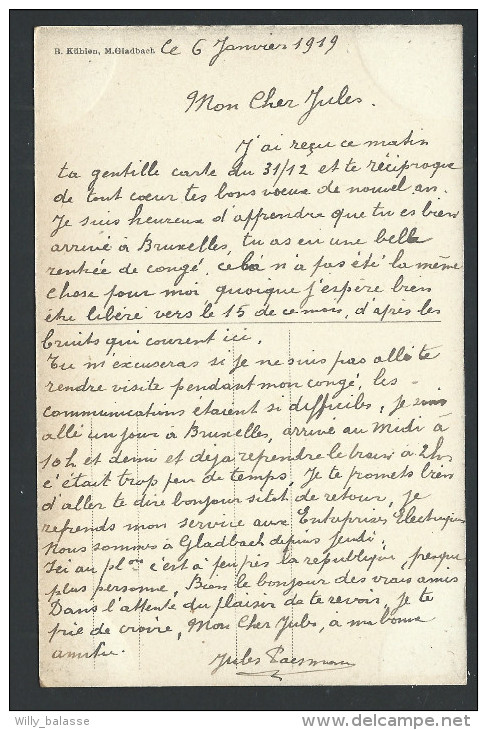 B. Kühlen, M.Gladbach
Le 6 Janvier 1919
Mon Cher Jules.
J'ai reçu ce matin
ta gentille carte du 31/12 et te réciproque
de tout coeur tes bons voeux de nouvel an.
Je suis heureux d'apprendre que tu es bien
arrivé à Bruxelles, tu as eu une belle
rentrée de congé, cela n'a pas été la même
chose pour moi, quoique j'espère bien
être libéré vers le 15 de ce mois, d'après les
bruits qui courent ici.
Tu m'excuseras si je ne suis pas allé te
rendre visite pendant mon congé, les
communications étaient si difficiles, je suis
allé un jour à Bruxelles, arrivé au Midi à
10h et demi et déjà reprendre le train à 2hs
c'était trop peu de temps. Je te promets bien
d'aller te dire bonjour sitôt de retour, je
reprends mon service aux Entreprises Electriques
Nous sommes à Gladbach depuis jeudi.
Ici au c'est à peu près la république, presque
plus personne. Bien le bonjour des vrais amis
Dans l'attente du plaisir de te revoir, je te
prie de croire, Mon Cher Jules, à ma bonne
amitié.
Jules
Willy_balasse
http://www.delcampe.net